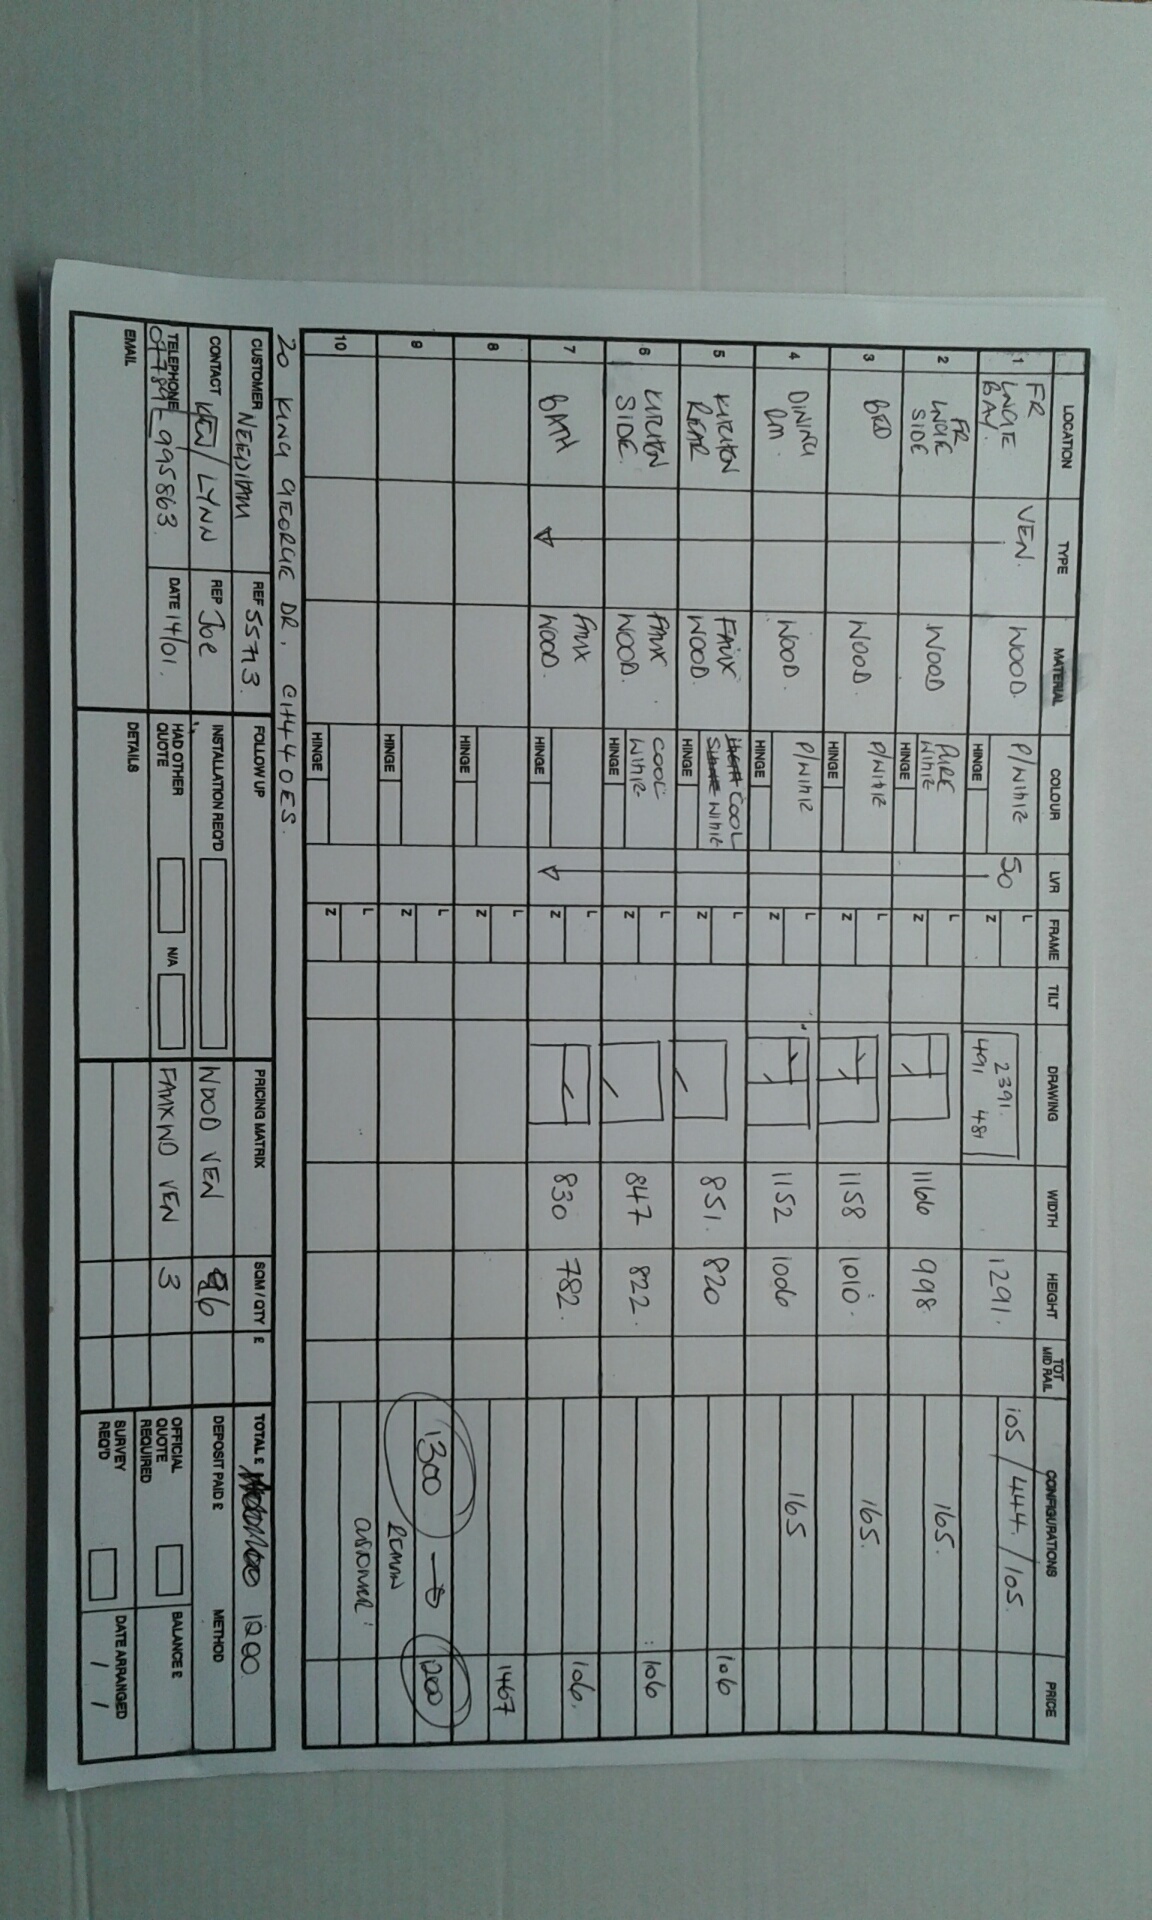 LOCATION TYPE MATERIAL COLOUR LVR FRAME TILT DRAWING WIDTH HEIGHT TOT MID RAIL CONFIGURATIONS PRICE
1 FR LNGE BAY. VEN. WOOD. P/WHITE HINGE 50 L Z 2391. 491 481 1291. 105/444./105.
2 FR LNGE SIDE WOOD PURE WHITE HINGE L Z 1166 998 165.
3 BED WOOD. P/WHITE HINGE L Z 1158 1010. 165.
4 DINING RM. WOOD. P/WHITE HINGE L Z 1152 1006 165
5 KITCHEN REAR FAUX WOOD. COOL WHITE HINGE L Z 851. 820 106
6 KITCHEN SIDE. FAUX WOOD. COOL WHITE HINGE L Z 847 822. 106
7 BATH FAUX WOOD. HINGE L Z 830 782. 106.
8 HINGE L Z 1467
9 HINGE L Z 1300 → 1200
10 HINGE L Z CUSTOMER
20 KING GEORGE DR. CH44 0ES.
CUSTOMER NEEDHAM REF 55713. FOLLOW UP PRICING MATRIX SQM / QTY £ TOTAL £ 1200
CONTACT KEN / LYNN REP Joe INSTALLATION REQ'D WOOD VEN 6 DEPOSIT PAID £ METHOD
TELEPHONE 07789 995863 DATE 14/01. HAD OTHER QUOTE N/A FAUXWD VEN 3 OFFICIAL QUOTE REQUIRED BALANCE £
EMAIL DETAILS SURVEY REQ'D DATE ARRANGED / /